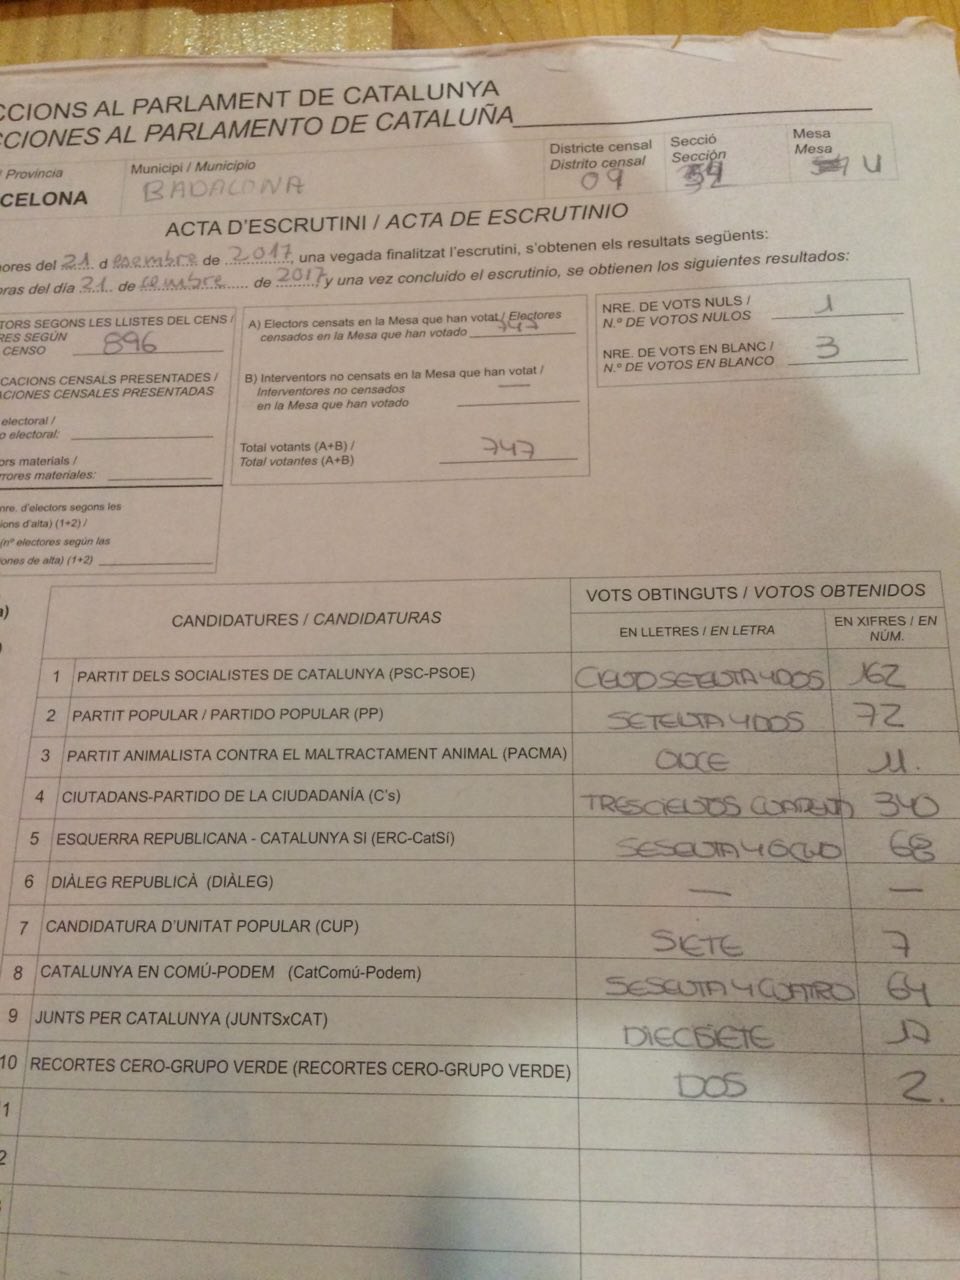 CCIONS AL PARLAMENT DE CATALUNYA
CCIONES AL PARLAMENTO DE CATALUÑA
/ Provincia
CELONA
Municipi / Municipio
BADALONA
Districte censal
Distrito censal
09
Secció
Sección
Mesa
Mesa
U
ACTA D'ESCRUTINI / ACTA DE ESCRUTINIO
ores del 21 d de 2017, una vegada finalitzat l'escrutini, s'obtenen els resultats següents:
oras del día 21 de de 2017 y una vez concluido el escrutinio, se obtienen los siguientes resultados:
TORS SEGONS LES LLISTES DEL CENS /
RES SEGÚN
CENSO 896
CACIONS CENSALS PRESENTADES /
ACIONES CENSALES PRESENTADAS
electoral /
o electoral:
ors materials /
rrores materiales:
nre. d'electors segons les
ions d'alta) (1+2) /
(nº electores según las
ones de alta) (1+2)
A) Electors censats en la Mesa que han votat / Electores
censados en la Mesa que han votado 747
B) Interventors no censats en la Mesa que han votat /
Interventores no censados
en la Mesa que han votado
Total votants (A+B) /
Total votantes (A+B) 747
NRE. DE VOTS NULS /
N.º DE VOTOS NULOS 1
NRE. DE VOTS EN BLANC /
N.º DE VOTOS EN BLANCO 3
CANDIDATURES / CANDIDATURAS
VOTS OBTINGUTS / VOTOS OBTENIDOS
EN LLETRES / EN LETRA
EN XIFRES / EN
NÚM.
1 PARTIT DELS SOCIALISTES DE CATALUNYA (PSC-PSOE) 162
2 PARTIT POPULAR / PARTIDO POPULAR (PP) SETENTA Y DOS 72
3 PARTIT ANIMALISTA CONTRA EL MALTRACTAMENT ANIMAL (PACMA) ONCE 11.
4 CIUTADANS-PARTIDO DE LA CIUDADANÍA (C's) TRESCIENTOS CUARENTA 340
5 ESQUERRA REPUBLICANA - CATALUNYA SÍ (ERC-CatSí) SESENTA Y OCHO 68
6 DIÀLEG REPUBLICÀ (DIÀLEG) — —
7 CANDIDATURA D'UNITAT POPULAR (CUP) SIETE 7
8 CATALUNYA EN COMÚ-PODEM (CatComú-Podem) SESENTA Y CUATRO 64
9 JUNTS PER CATALUNYA (JUNTSxCAT) DIECISIETE 17
10 RECORTES CERO-GRUPO VERDE (RECORTES CERO-GRUPO VERDE) DOS 2.
1
2